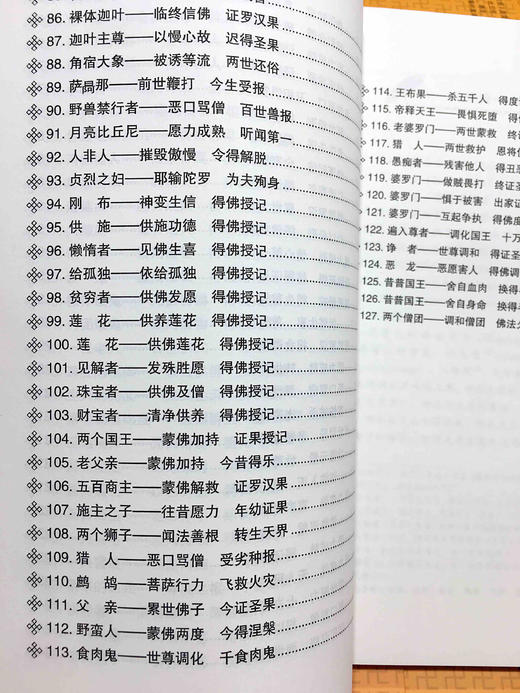 86. 裸体迦叶——临终信佛 证罗汉果
87. 迦叶主尊——以慢心故 迟得圣果
88. 角宿大象——被诱等流 两世还俗
89. 萨曷那——前世鞭打 今生受报
90. 野兽禁行者——恶口骂僧 百世兽报
91. 月亮比丘尼——愿力成熟 听闻第一
92. 人非人——摧毁傲慢 令得解脱
93. 贞烈之妇——耶输陀罗 为夫殉身
94. 刚 布——神变生信 得佛授记
95. 供 施——供施功德 得佛授记
96. 懒惰者——见佛生喜 得佛授记
97. 给孤独——依给孤独 得佛授记
98. 贫穷者——供佛发愿 得佛授记
99. 莲 花——供养莲花 得佛授记
100. 莲 花——供佛莲花 得佛授记
101. 见解者——发殊胜愿 得佛授记
102. 珠宝者——供佛及僧 得佛授记
103. 财宝者——清净供养 得佛授记
104. 两个国王——蒙佛加持 证果授记
105. 老父亲——蒙佛加持 今昔得乐
106. 五百商主——蒙佛解救 证罗汉果
107. 施主之子——往昔愿力 年幼证果
108. 两个狮子——闻法善根 转生天界
109. 猎 人——恶口骂僧 受劣种报
110. 鹧 鸪——菩萨行力 飞救火灾
111. 父 亲——累世佛子 今证圣果
112. 野蛮人——蒙佛两度 今得涅槃
113. 食肉鬼——世尊调化 千食肉鬼
114. 王布果——杀五千人 得度
115. 帝释天王——畏惧死堕 得
116. 老婆罗门——两世蒙救 终
117. 猎 人——两世救护 恩将
118. 愚痴者——残害他人 得丑
119. 婆罗门——做贼畏打 终证
120. 婆罗门——惧于被害 出家证
121. 婆罗门——互起争执 得佛度
122. 遍入尊者——调化国王 十万
123. 诤 者——世尊调和 得证
124. 恶 龙——恶愿害人 得佛调
125. 昔普国王——舍自血肉 换得
126. 昔普国王——舍自身命 换得
127. 两个僧团——调和僧团 佛法